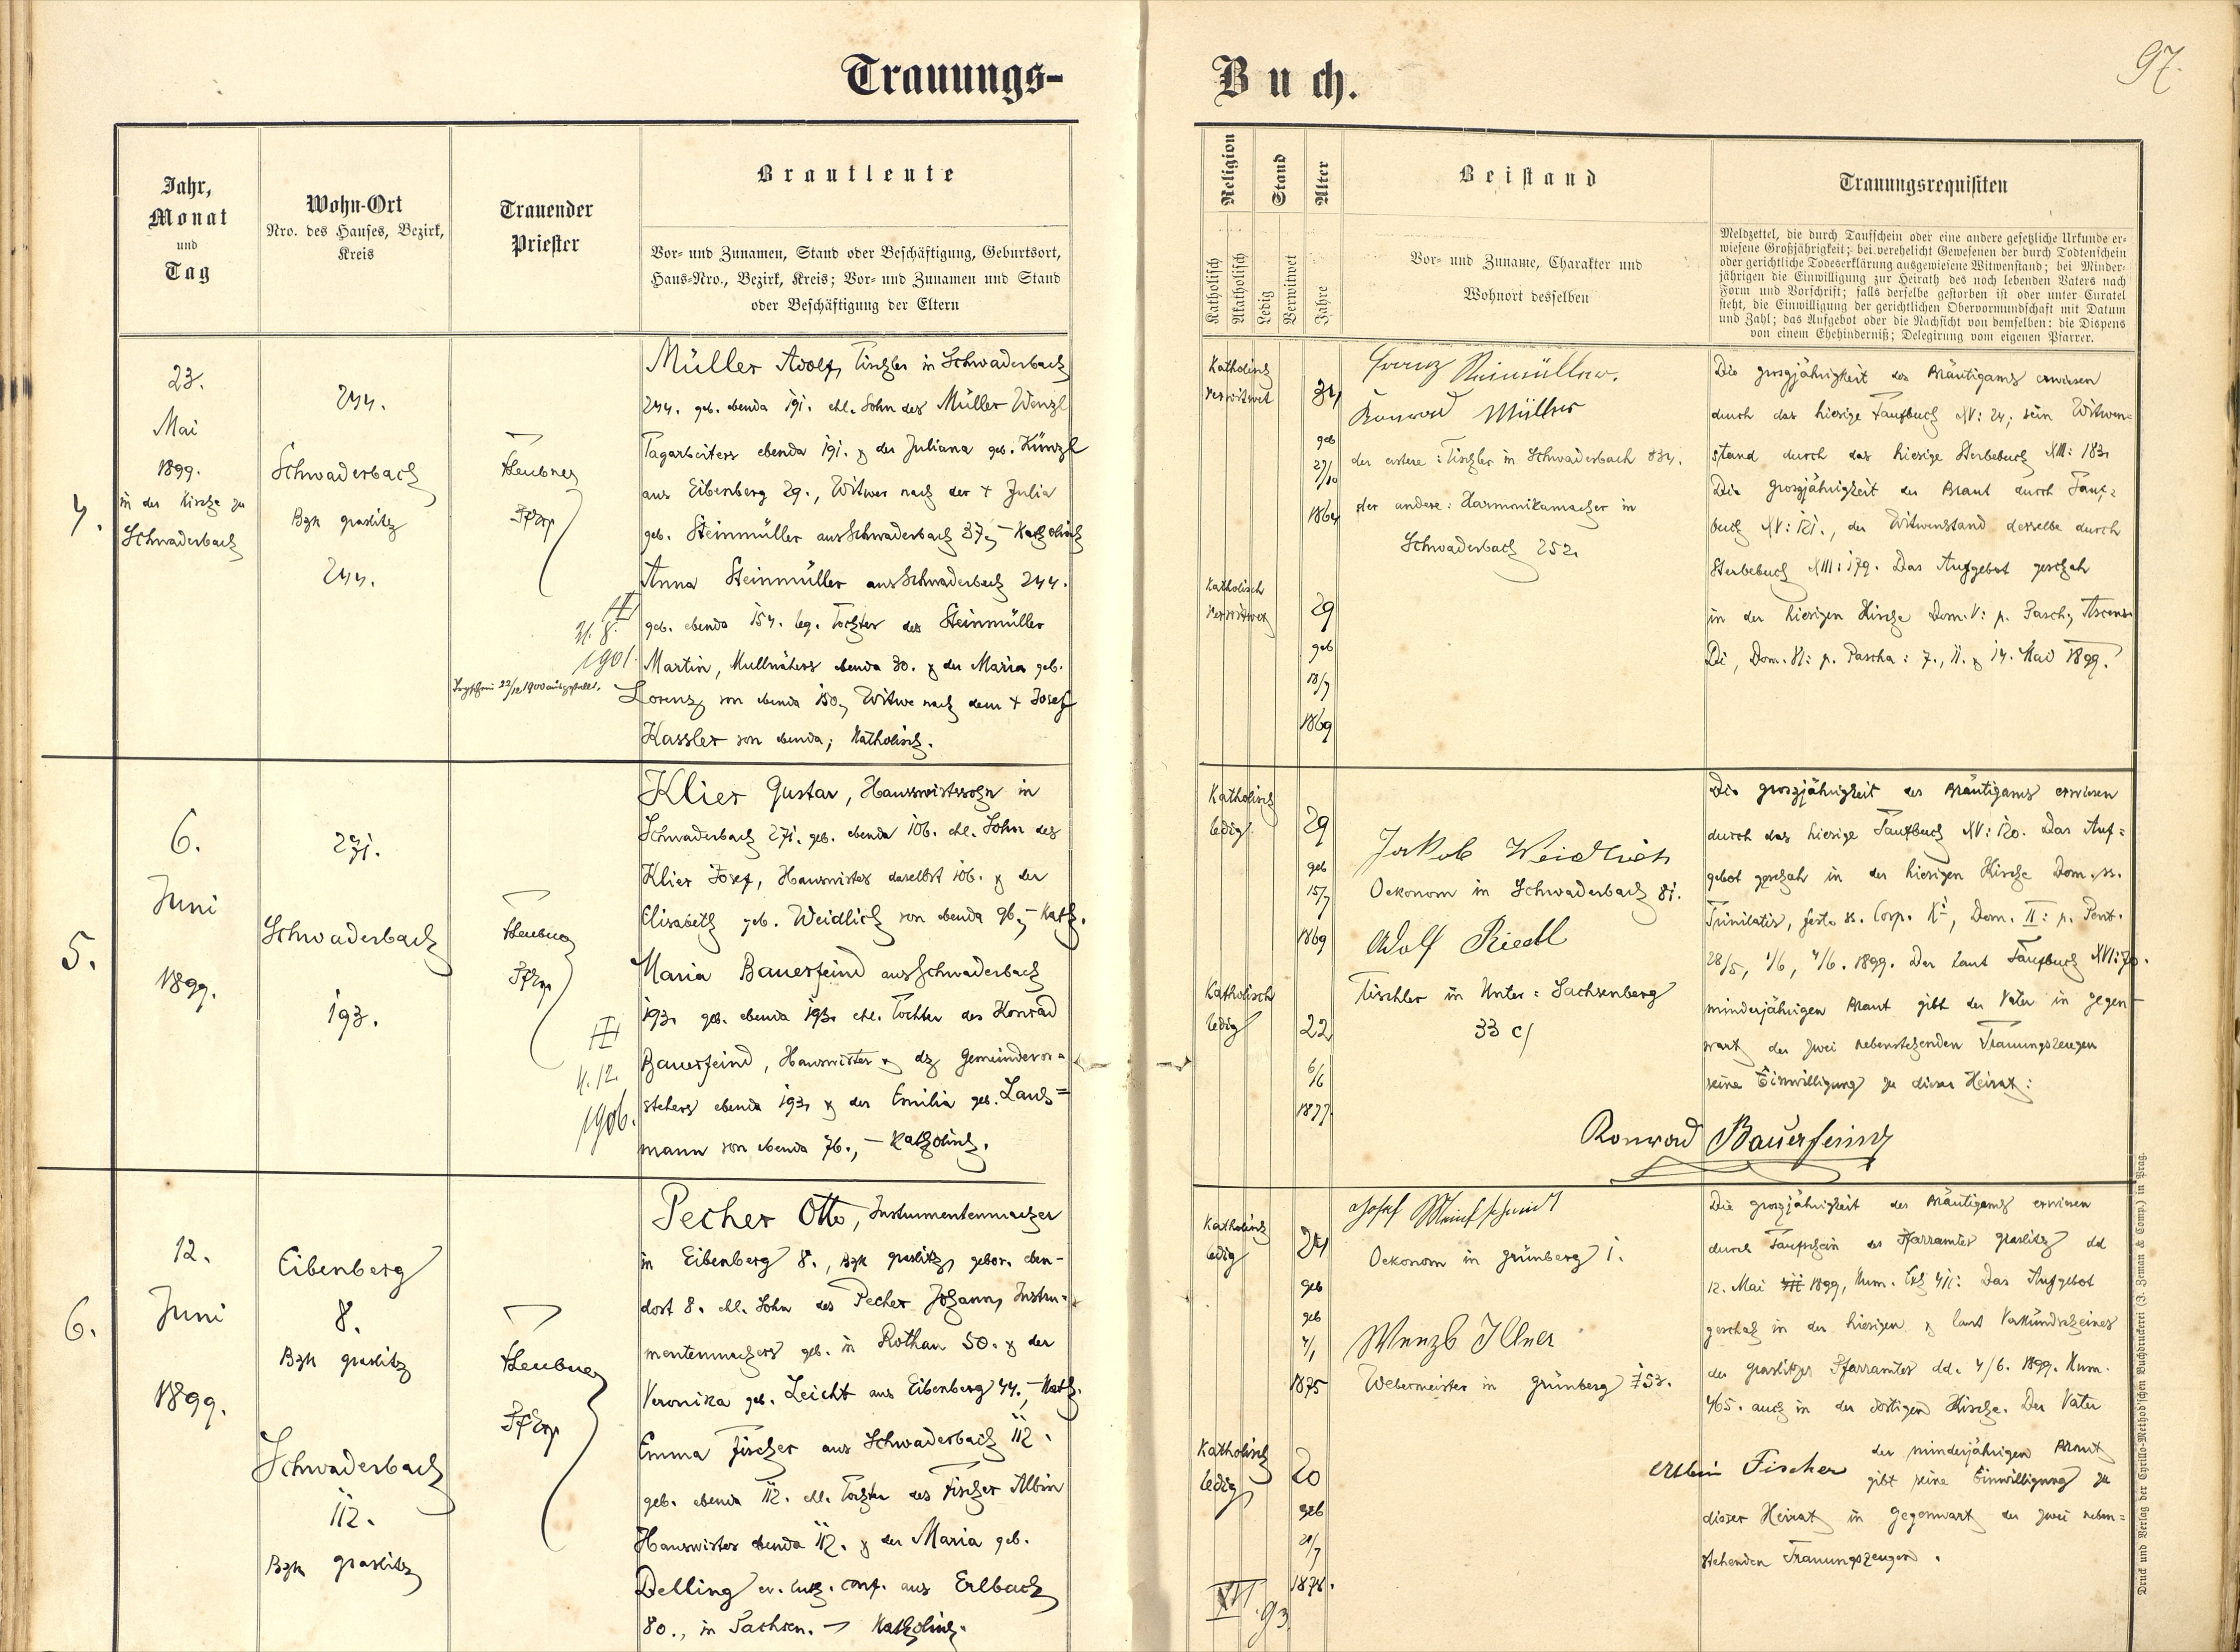 Trauungs-
Buch.
97.
Jahr,
Monat
und
Tag
Wohn-Ort
Nro. des Hauses, Bezirk,
Kreis
Trauender
Priester
Brautleute
Vor- und Zunamen, Stand oder Beschäftigung, Geburtsort,
Haus-Nro., Bezirk, Kreis; Vor- und Zunamen und Stand
oder Beschäftigung der Eltern
Religion
Katholisch
Akatholisch
Stand
Ledig
Verwitwet
Alter
Jahre
Beistand
Vor- und Zuname, Charakter und
Wohnort desselben
Trauungsrequisiten
Meldzettel, die durch Taufschein oder eine andere gesetzliche Urkunde er-
wiesene Großjährigkeit; bei verehelicht Gewesenen der durch Todtenschein
oder gerichtliche Todeserklärung ausgewiesene Witwenstand; bei Minder-
jährigen die Einwilligung zur Heirath des noch lebenden Vaters nach
Form und Vorschrift; falls derselbe gestorben ist oder unter Curatel
steht, die Einwilligung der gerichtlichen Obervormundschaft mit Datum
und Zahl; das Aufgebot oder die Nachsicht von demselben: die Dispens
von einem Ehehinderniß; Delegirung vom eigenen Pfarrer.
4.
23.
Mai
1899.
in der Kirche zu
Schwaderbach
244.
Schwaderbach
Bzk graslitz
244.
Heubner
Pfrr
II
31. 8.
1901.
22/12 1900 ausgestellt.
Müller Adolf, Tischler in Schwaderbach
244. geb. ebenda 191. ehl. Sohn des Müller Wenzl
Tagarbeiters ebenda 191. & der Juliana geb. Künzl
aus Eibenberg 29., Witwer nach der † Julia
geb. Steinmüller aus Schwaderbach 37., – Katholisch
Anna Steinmüller aus Schwaderbach 244.
geb. ebenda 154. leg. Tochter des Steinmüller
Martin, Mullnähers ebenda 30. & der Maria geb.
Lorenz von ebenda 150., Witwe nach dem † Josef
Kassler von ebenda; Katholisch.
Katholisch
verwitwet
34
geb
27/10
1864
Katholisch
verwitwet
29
geb
18/7
1869
Franz Steinmüller.
Konrad Müller
der erstere: Tischler in Schwaderbach 834.
der andere: Harmonikamacher in
Schwaderbach 252.
Die grosjährigkeit des Bräutigams erwiesen
durch das hiesige Taufbuch XV: 24; sein Witwen-
stand durch das hiesige Sterbebuch XIII: 183.
Die Grosjährigkeit der Braut durch Tauf-
buch XV: 121., der Witwenstand derselbe durch
Sterbebuch XIII: 179. Das Aufgebot geschah
in der hiesigen Kirche Dom. V: p. Pasch, Ascens.
Di, Dom. VI: p. Pascha: 7., 11. & 14. Mai 1899.
5.
6.
Juni
1899.
271.
Schwaderbach
193.
Heubner
Pfrr
4. 12.
1906.
Klier Gustav, Hauswirtssohn in
Schwaderbach 271. geb. ebenda 106. ehl. Sohn des
Klier Josef, Hauswirtes daselbst 106. & der
Elisabeth geb. Weidlich von ebenda 96., – Kath.
Maria Bauerfeind aus Schwaderbach
193. geb. ebenda 193. ehl. Tochter des Konrad
Bauerfeind, Hauswirtes & dz Gemeindevor-
stehers ebenda 193. & der Emilia geb. Lands-
mann von ebenda 76., – Katholisch.
Katholisch
ledig
29
geb
15/7
1869
Katholisch
ledig
22
6/6
1877
Jakob Weidlich
Oekonom in Schwaderbach 81.
Adolf Riedl
Tischler in Unter-Sachsenberg
33 c/
Die grosjährigkeit des Bräutigams erwiesen
durch das hiesige Taufbuch XV: 120. Das Auf-
gebot geschah in der hiesigen Kirche Dom. ss.
Trinitatis, festo ss. Corp. Xi, Dom. II: p. Pent.
28/5, 1/6, 4/6. 1899. Der laut Taufbuch XVI: 70.
minderjährigen Braut gibt der Vater in gegen-
wart der zwei nebenstehenden Trauungszeugen
seine Einwilligung zu dieser Heirat:
Konrad Bauerfeind
6.
12.
Juni
1899.
Eibenberg
8.
Bzk graslitz
Schwaderbach
112.
Bzk graslitz
Heubner
Pfrr
Pecher Otto, Instrumentenmacher
in Eibenberg 8., Bzk graslitz, gebor. eben-
dort 8. ehl. Sohn des Pecher Johann, Instru-
mentenmachers geb. in Rothau 50. & der
Veronika geb. Leicht aus Eibenberg 44., – Kath.
Emma Fischer aus Schwaderbach 112.
geb. ebenda 112. ehl. Tochter des Fischer Albin
Hauswirtes ebenda 112. & der Maria geb.
Delling ev. luth. conf. aus Erlbach
80., in Sachsen. – Katholisch.
Katholisch
ledig
24
geb
geb
4/1
1875
Katholisch
ledig
20
geb
1878.
XVI. 93
Josef Meinlschmidt
Oekonom in grünberg 1.
Wenzl Illner
Webermeister in grünberg 153.
Die grosjährigkeit des Bräutigams erwiesen
durch Taufschein des Pfarramtes graslitz dd
12. Mai 1899, Num. Exh 411: Das Aufgebot
geschah in der hiesigen & laut Verkündscheines
des graslitzer Pfarramtes dd. 4/6. 1899. Num.
465. auch in der dortigen Kirche. Der Vater
der minderjährigen Braut
Albin Fischer gibt seine Einwilligung zu
dieser Heirat in Gegenwart der zwei neben-
stehenden Trauungszeugen.
Druck und Verlag der Cyrillo-Method'schen Buchdruckerei (J. Zeman & Comp.) in Prag.